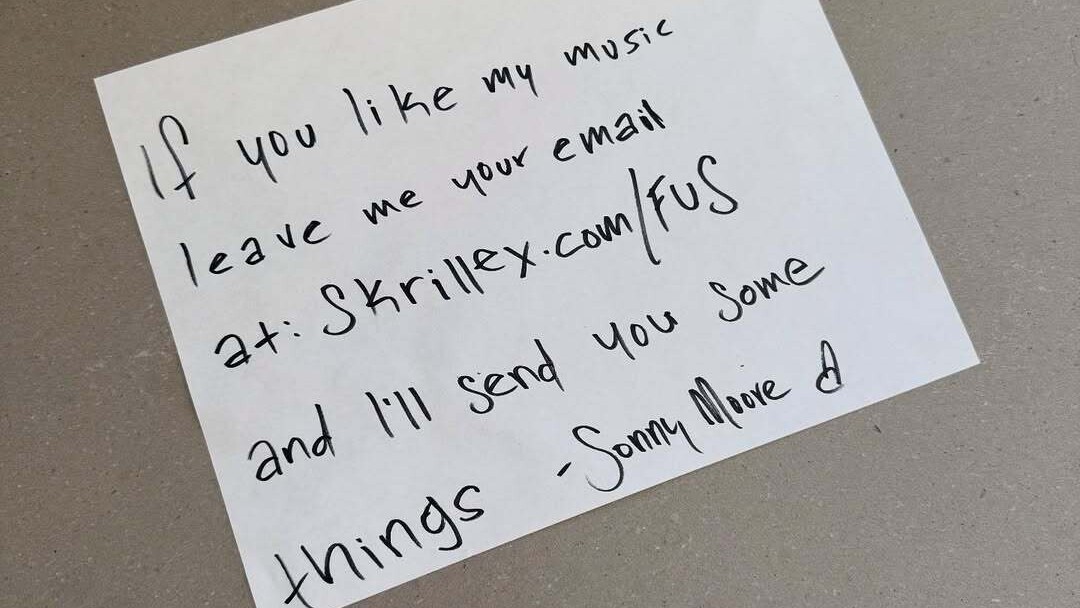 If you like my music
leave me your email
at: Skrillex.com/FUS
and I'll send you some
things -Sonny Moore